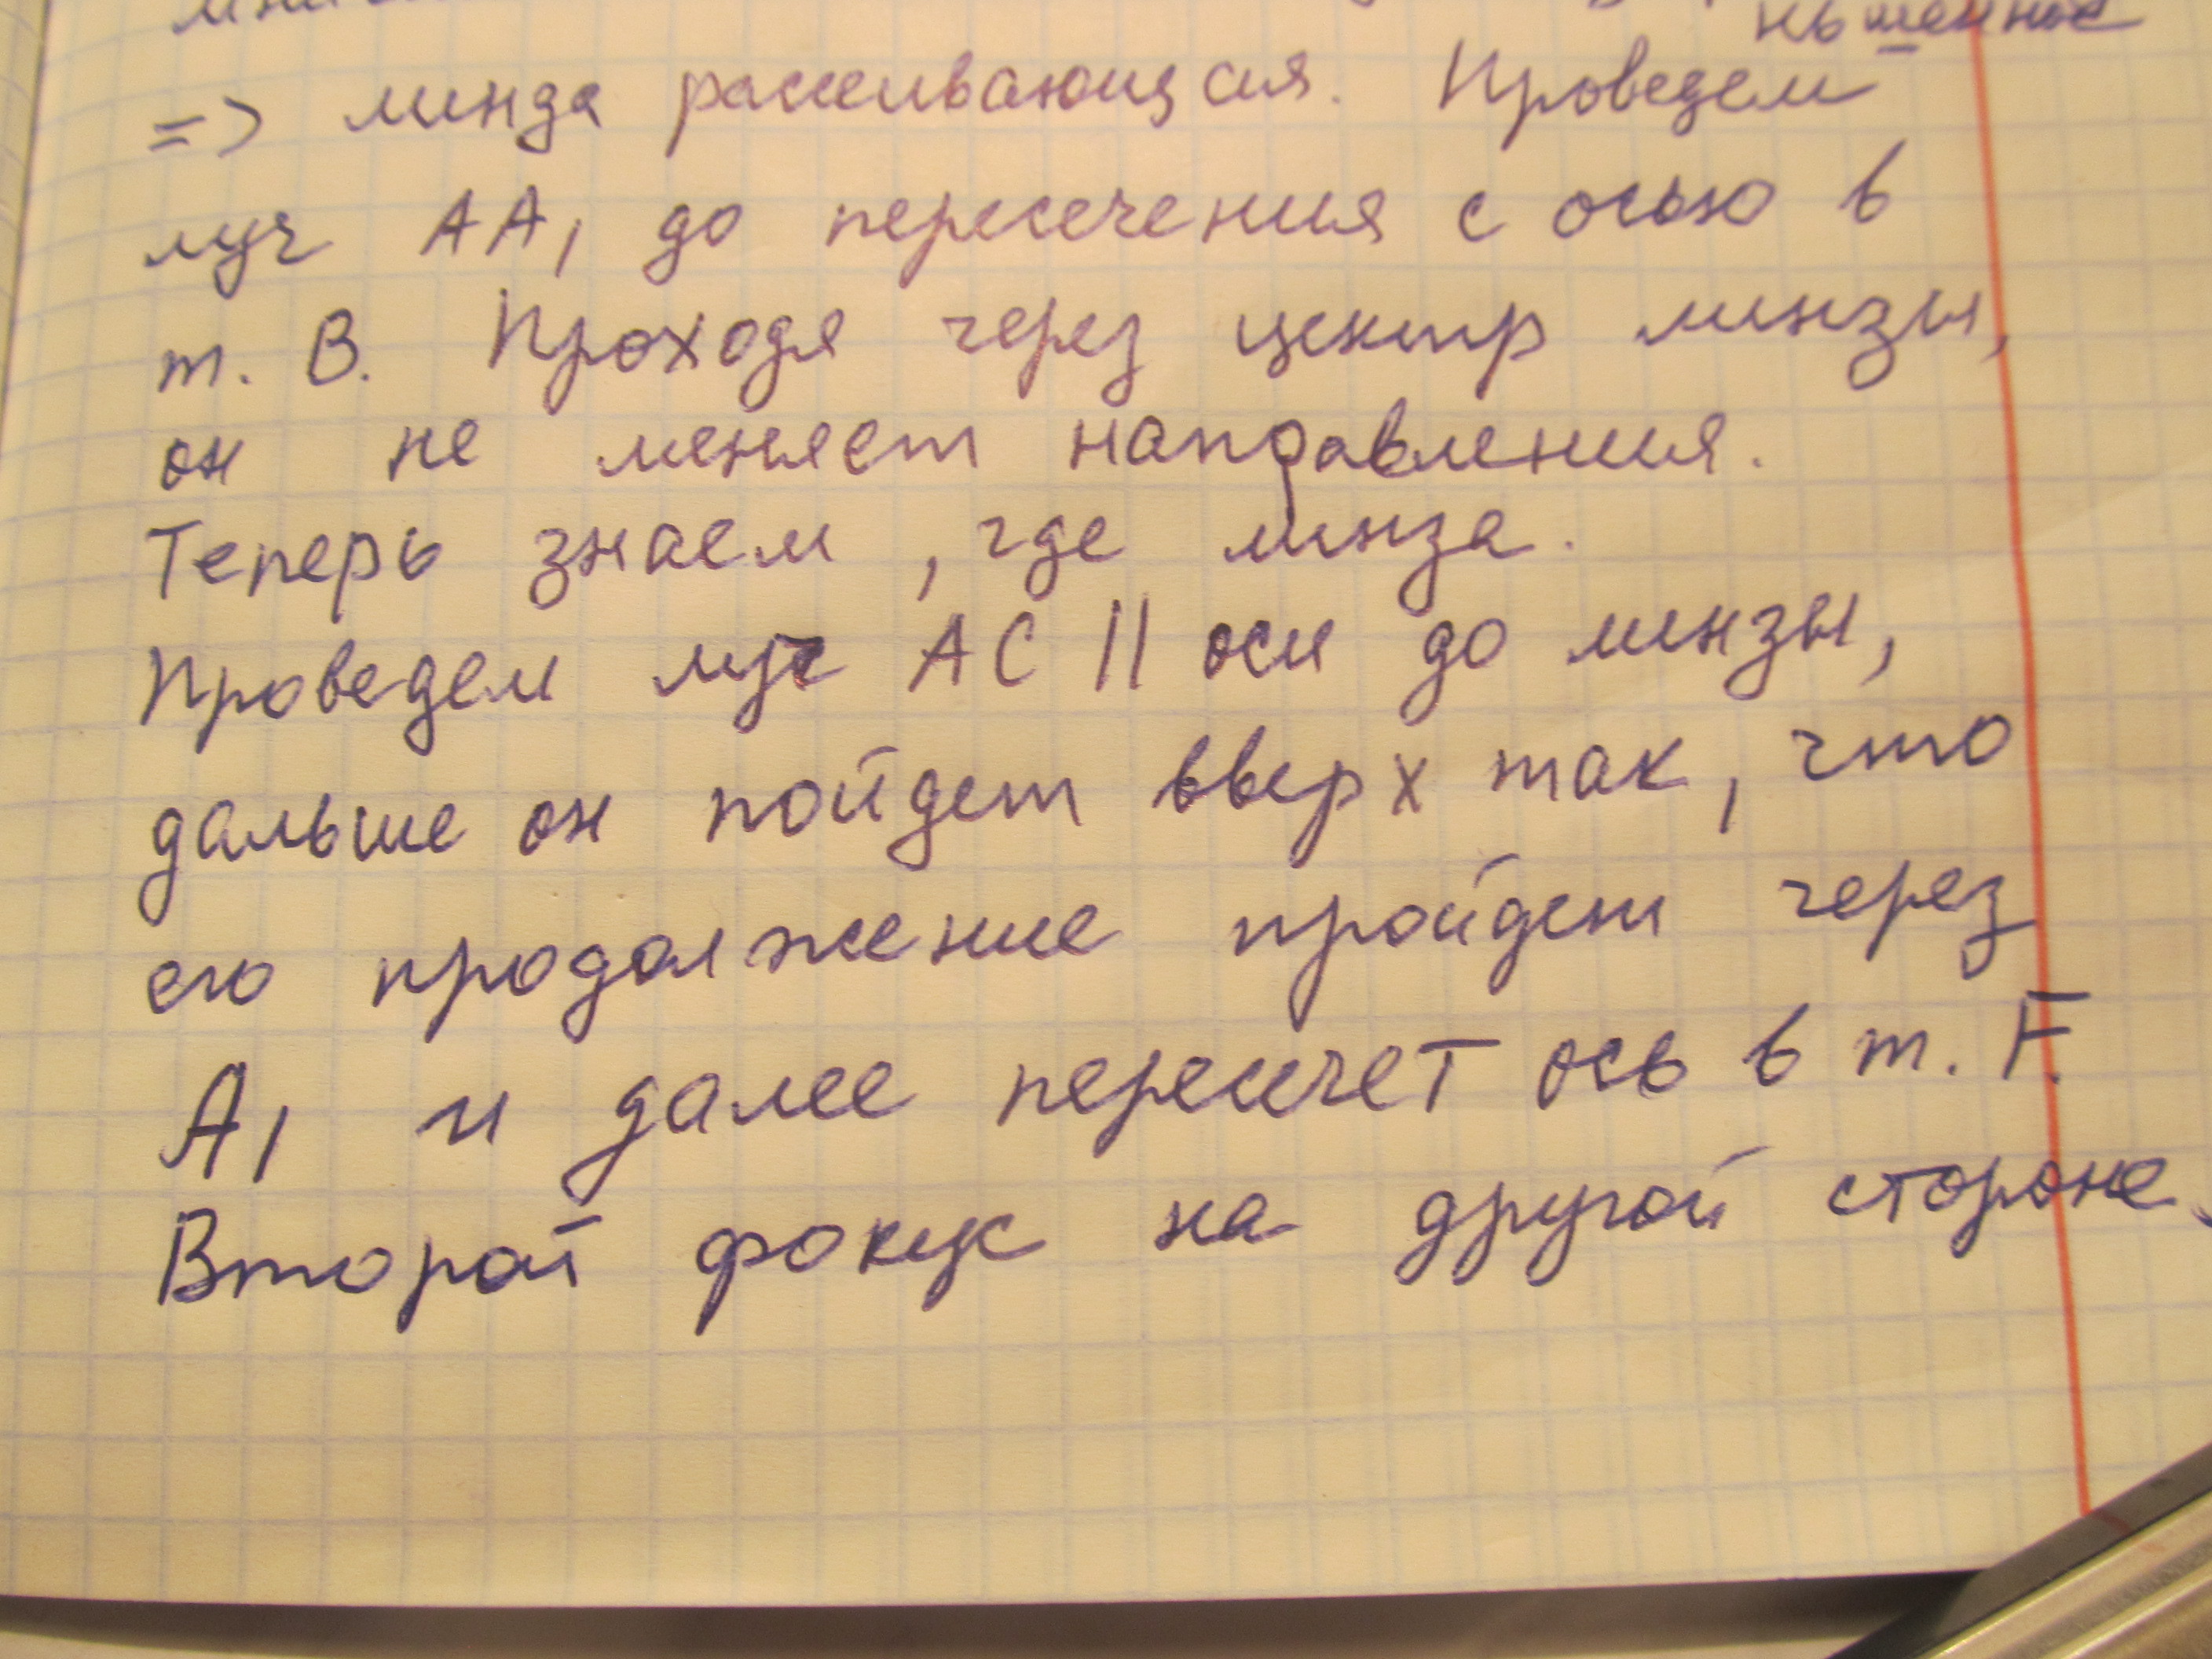 ньшенное
=> линза рассеивающая. Проведем
луч AA1 до пересечения с осью в
т. B. Проходя через центр линзы,
он не меняет направления.
Теперь знаем, где линза.
Проведем луч AC || оси до линзы,
дальше он пойдет вверх так, что
его продолжение пройдет через
A1 и далее пересечет ось в т. F.
Второй фокус на другой стороне.